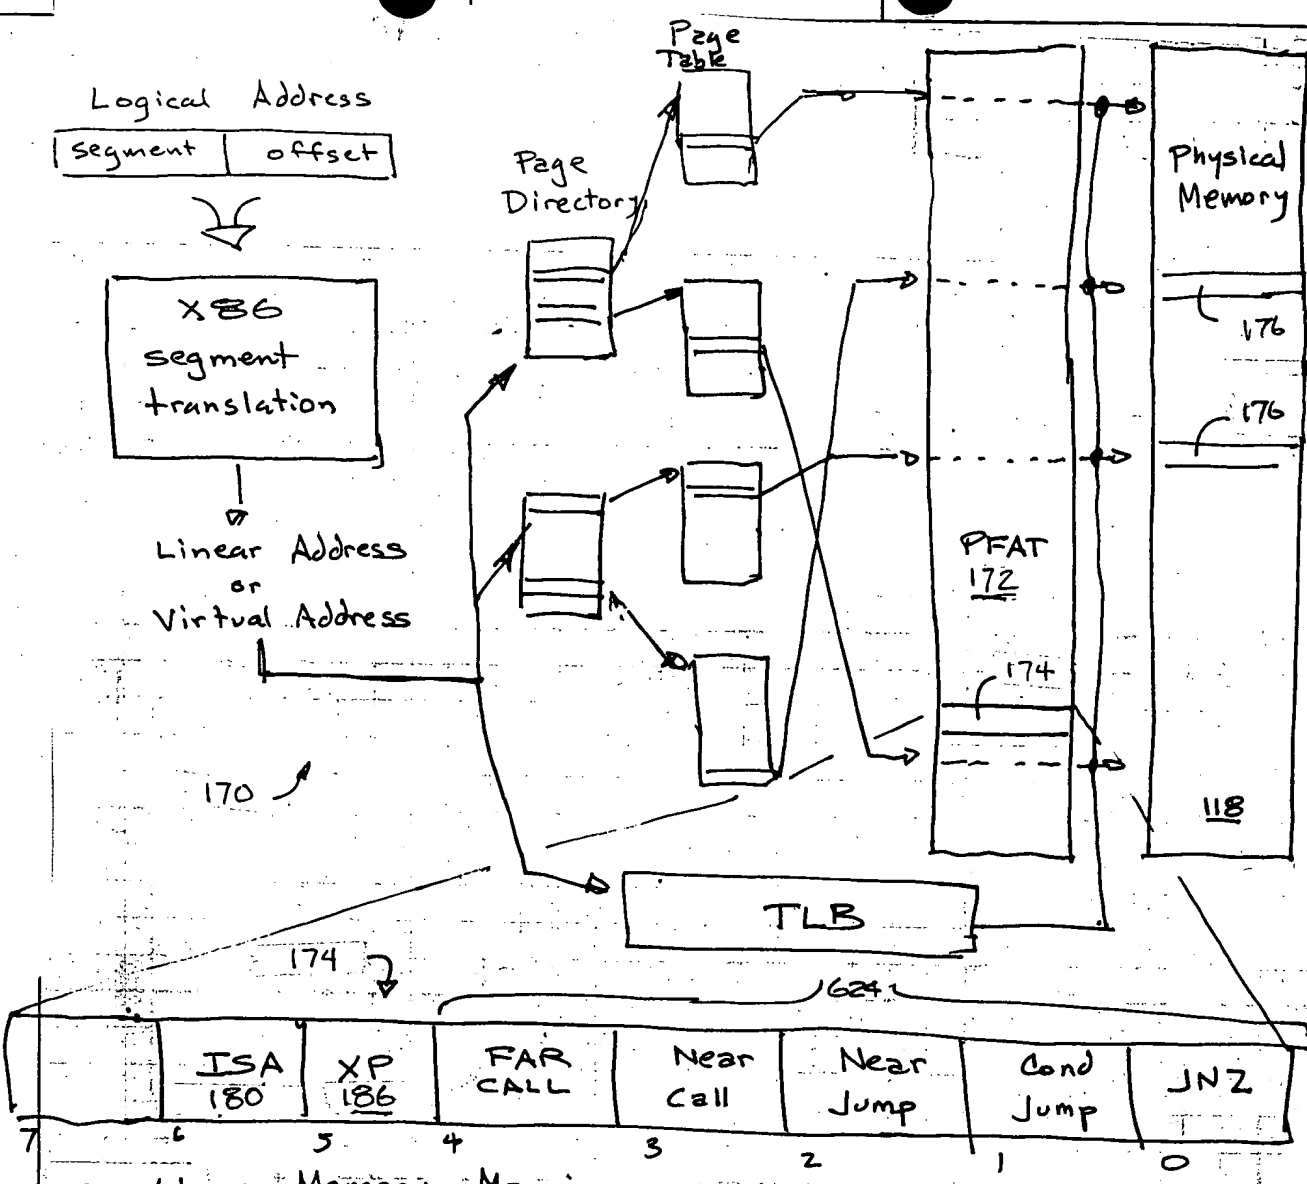 Logical Address
segment offset
X86
segment
translation
Linear Address
or
Virtual Address
170
Page
Directory
Page
Table
PFAT
172
174
Physical
Memory
176
176
118
TLB
174
624
ISA
180
XP
186
FAR
CALL
Near
Call
Near
Jump
Cond
Jump
JNZ
7 6 5 4 3 2 1 0
Memory